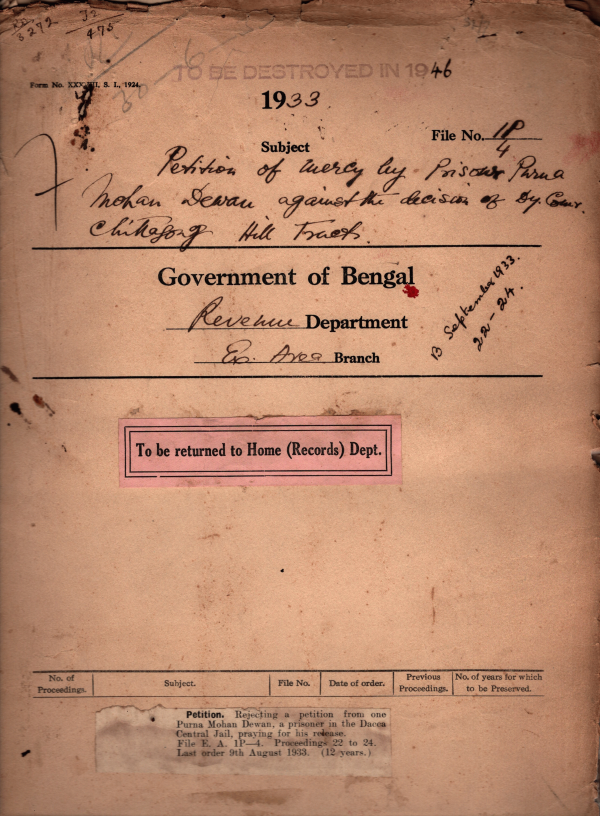 8272
J2
475
TO BE DESTROYED IN 1946
S. I., 1924.
1933
File No. 1P/4
Subject
Petition of mercy by Prisoner Purna
Mohan Dewan against the decision of Dy. Comr.
Chittagong Hill Tracts.
Government of Bengal
Revenue Department
Ex. Area Branch
B September 1933.
22-24.
To be returned to Home (Records) Dept.
No. of Proceedings.
Subject.
File No.
Date of order.
Previous Proceedings.
No. of years for which to be Preserved.
Petition. Rejecting a petition from one
Purna Mohan Dewan, a prisoner in the Dacca
Central Jail, praying for his release.
File E. A. 1P—4. Proceedings 22 to 24.
Last order 9th August 1933. (12 years.)